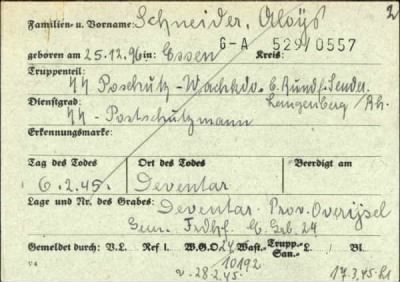 2
Familien- u. Vorname: Schneider, Aloys
G-A 529/0557
geboren am 25.12.96 in: Essen Kreis:
Truppenteil: SS Poschutz-Wachkdo. b. Rundf. Sender
Langenberg/Rh.
Dienstgrad: SS-Postschutzmann
Erkennungsmarke:
Tag des Todes Ort des Todes Beerdigt am
6.2.45. Deventar
Lage und Nr. des Grabes: Deventar Prov. Overijsel
Gem. Frdhf. Grb. 24
Gemeldet durch: V.L. Ref 1. W.G.O. Wast.- Trupp.- San.- L. / Bl.
10192
v. 28.2.45. 17.3.45.